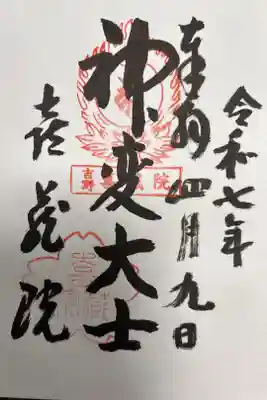 令和七年
奉拝 四月九日
神変大士
喜蔵院
吉野 喜蔵院